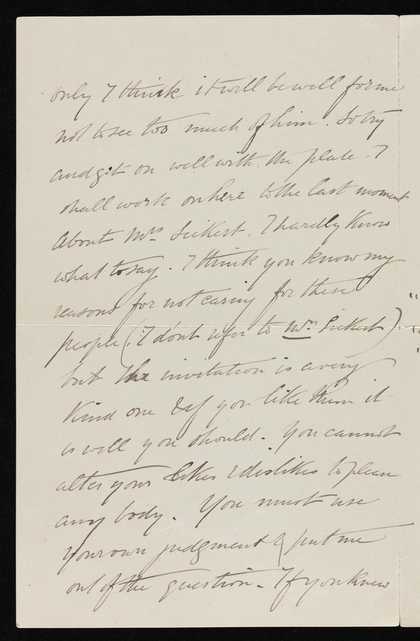 only I think it will be well for me
not to see too much of him. So try
and get on well with the plate. I
shall work on here to the last moment
About Mrs Sickert. I hardly know
what to say. I think you know my
reasons for not caring for these
people (I don't refer to Mrs Sickert)
but the invitation is a very
kind one & if you like them it
is well you should. You cannot
alter your likes & dislikes to please
any body. You must use
your own judgment & put me
out of the question. If you knew